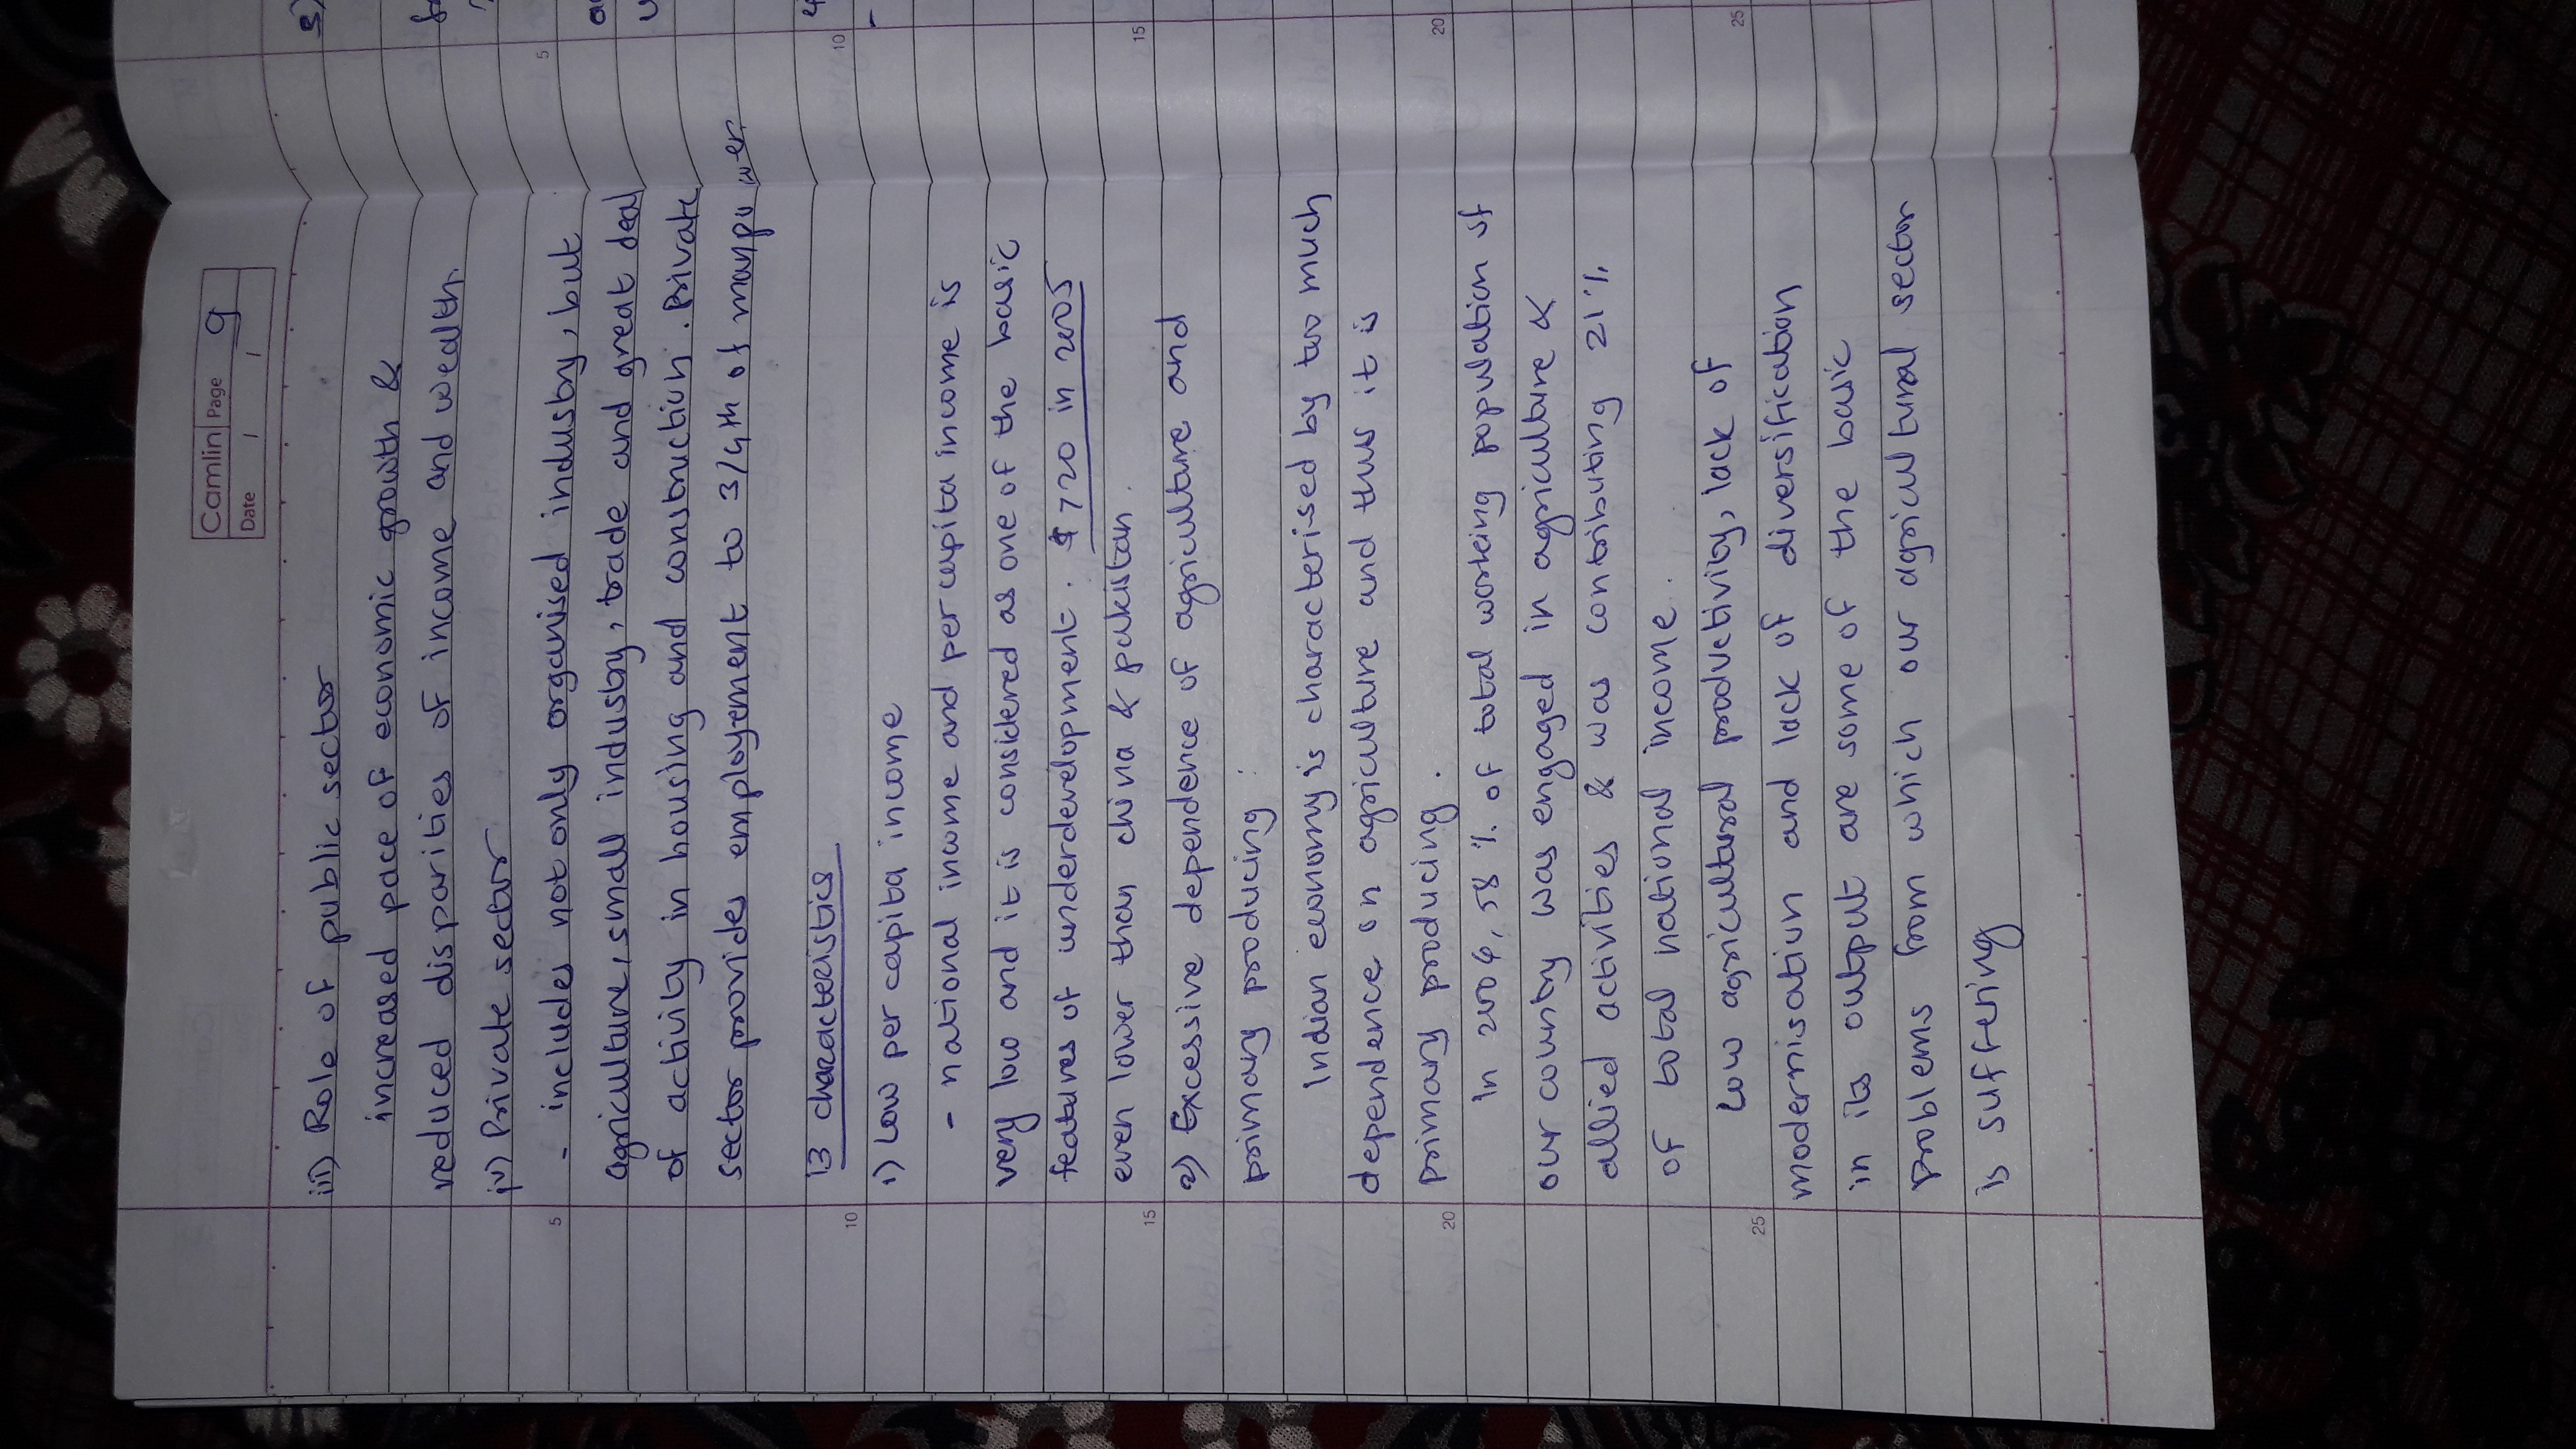 Camlin Page 9
Date / /
iii) Role of public sector
increased pace of economic growth &
reduced disparities of income and wealth.
iv) Private sector
- includes not only organised industry, but
agriculture, small industry, trade and great deal
of activity in housing and construction. Private
sector provides employement to 3/4th of manpower.
13 characteristics
1) Low per capita income
- national income and per capita income is
very low and it is considered as one of the basic
features of underdevelopment. $720 in 2005
even lower than china & pakistan.
2) Excessive dependence of agriculture and
primary producing :
Indian economy is characterised by too much
dependence on agriculture and thus it is
primary producing.
In 2004, 58 % of total working population of
our country was engaged in agriculture &
allied activities & was contributing 21%
of total national income.
Low agricultural productivity, lack of
modernisation and lack of diversification
in its output are some of the basic
problems from which our agricultural sector
is suffering
5
10
15
20
25
5
10
15
20
25